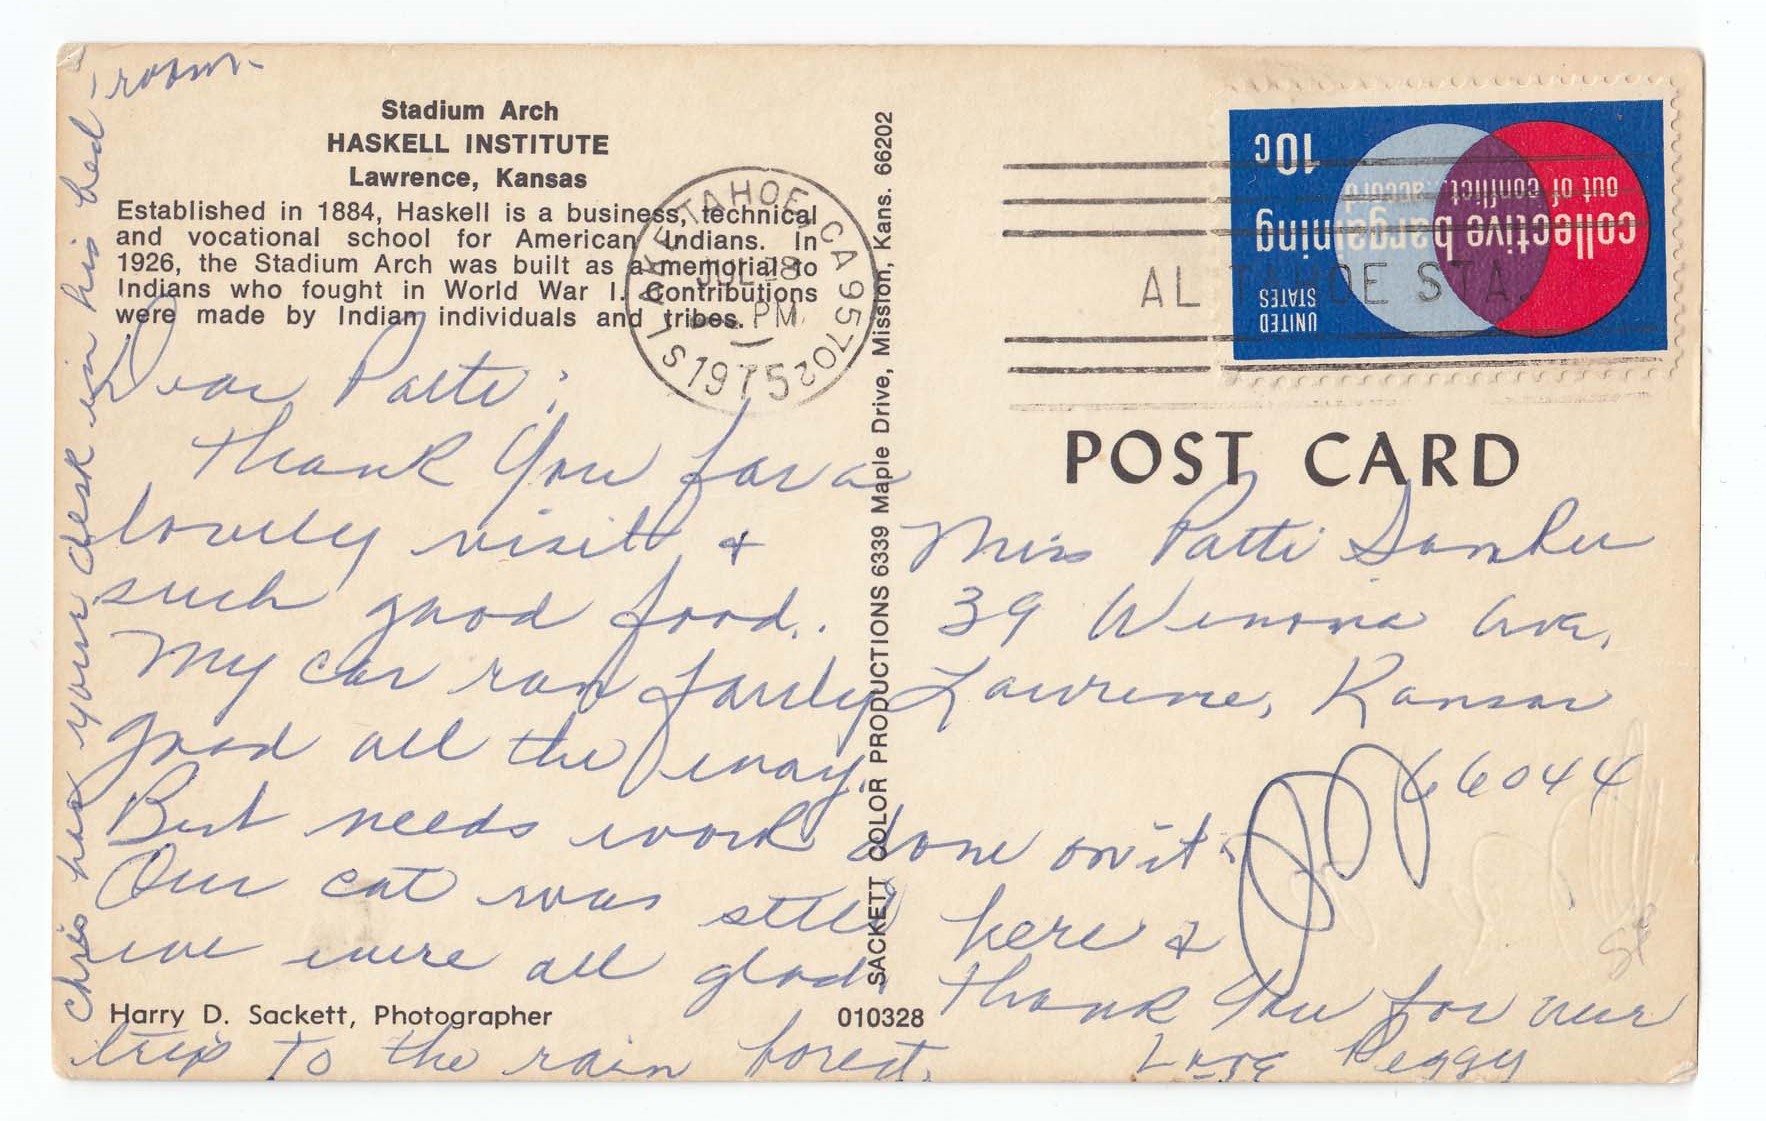 Stadium Arch
HASKELL INSTITUTE
Lawrence, Kansas
Established in 1884, Haskell is a business, technical
and vocational school for American Indians. In
1926, the Stadium Arch was built as a memorial to
Indians who fought in World War I. Contributions
were made by Indian individuals and tribes.
Dear Patti:
Thank You for a
lovely visit &
such good food..
My car ran fairly
good all the way.
But needs work done on it.
Our cat was still here &
we were all glad. Thank You for our
trip to the rain forest.
Love Peggy
Chris has your desk in his bed-room-
Harry D. Sackett, Photographer
010328
SACKETT COLOR PRODUCTIONS 6339 Maple Drive, Mission, Kans. 66202
TAHOE CA 95702
JUL 28
PM
1975
AL TAHOE STA.
collective bargaining
out of conflict, accord
UNITED
STATES
10c
POST CARD
Miss Patti
39 Winona Ave.
Lawrence, Kansas
66044